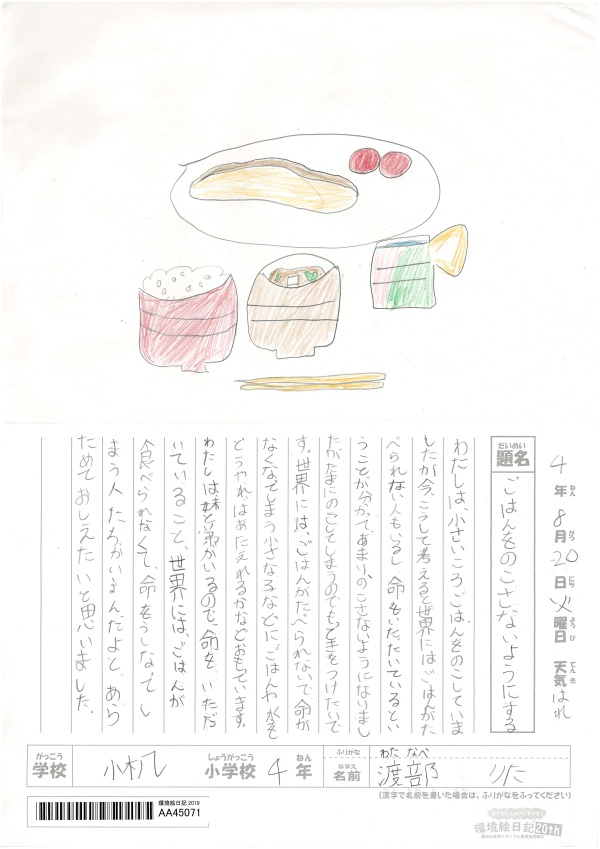 4年ねん8月がつ20日にち火曜日ようび 天気てんき はれ
だいめい
題名
ごはんをのこさないようにする
わたしは、小さいころごはんをのこしていま
したが今、こうして考えると世界にはごはんがた
べられない人もいるし、命をいただいているとい
うことが分かって、あまりのこさないようになりまし
たがたまにのこしてしまうのでもっと気をつけたいで
す。世界には、ごはんがたべられないで命が
なくなてしまう小さな子などにごはんや水を
どうやればあたえれるかなどおもています。
わたしは妹と弟がいるので、命を、いただ
いていること、世界には、ごはんが
食べられなくて、命をうしなってし
まう人たちがいるんだよと、あら
ためておしえたいと思いました。
がっこう
学校
しょうがっこう
小学校
4年ねん
ふりがな わた なべ
なまえ
名前 渡部 りた
(漢字で名前を書いた場合は、ふりがなをふってください)
環境絵日記 2019
AA45071
環境絵日記20th